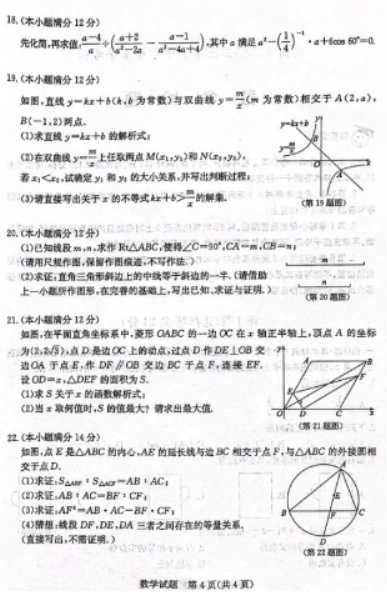 18.(本小题满分 12 分)
先化简,再求值:\frac{a-4}{a}÷(\frac{a+2}{a²-2a}-\frac{a-1}{a²-4a+4}),其中 a 满足 a²-(\frac{1}{4})^{-1}·a+6cos 60°=0.
19.(本小题满分 12 分)
如图,直线 y=kx+b(k,b 为常数)与双曲线 y=\frac{m}{x}(m 为常数)相交于 A(2,a),
B(-1,2)两点.
(1)求直线 y=kx+b 的解析式;
(2)在双曲线 y=\frac{m}{x}上任取两点 M(x₁,y₁)和 N(x₂,y₂),
若 x₁<x₂,试确定 y₁ 和 y₂ 的大小关系,并写出判断过程;
(3)请直接写出关于 x 的不等式 kx+b>\frac{m}{x}的解集.
y=kx+b
y
B
y=\frac{m}{x}
O
x
A
(第 19 题图)
20.(本小题满分 12 分)
(1)已知线段 m,n,求作 Rt△ABC,使得∠C=90°,CA=m,CB=n;
(请用尺规作图,保留作图痕迹,不写作法.)
(2)求证:直角三角形斜边上的中线等于斜边的一半.(请借助
上一小题所作图形,在完善的基础上,写出已知、求证与证明.)
m
n
(第 20 题图)
21.(本小题满分 12 分)
如图,在平面直角坐标系中,菱形 OABC 的一边 OC 在 x 轴正半轴上,顶点 A 的坐标
为(2,2√3),点 D 是边 OC 上的动点,过点 D 作 DE⊥OB 交
边 OA 于点 E,作 DF∥OB 交边 BC 于点 F,连接 EF.
设 OD=x,△DEF 的面积为 S.
(1)求 S 关于 x 的函数解析式;
(2)当 x 取何值时,S 的值最大? 请求出最大值.
y
A
B
E
F
O
D
C
x
(第 21 题图)
22.(本小题满分 14 分)
如图,点 E 是△ABC 的内心,AE 的延长线与边 BC 相交于点 F,与△ABC 的外接圆相
交于点 D.
(1)求证:S△ABF:S△ACF=AB:AC;
(2)求证:AB:AC=BF:CF;
(3)求证:AF²=AB·AC-BF·CF;
(4)猜想:线段 DF,DE,DA 三者之间存在的等量关系.
(直接写出,不需证明.)
A
E
B
F
C
D
(第 22 题图)
数学试题 第 4 页(共 4 页)